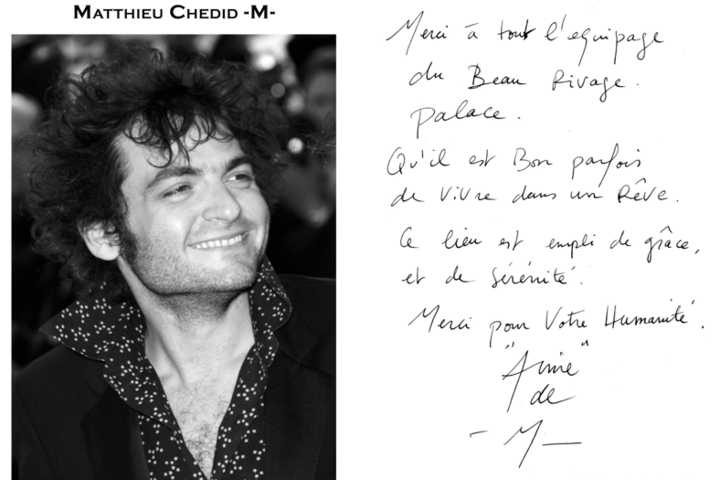 MATTHIEU CHEDID -M-
Merci à tout l'équipage
du Beau Rivage.
palace.
Qu'il est Bon parfois
de vivre dans un Rêve.
Ce lieu est empli de grâce,
et de sérénité.
Merci pour Votre Humanité.
"Aime"
de
- M -